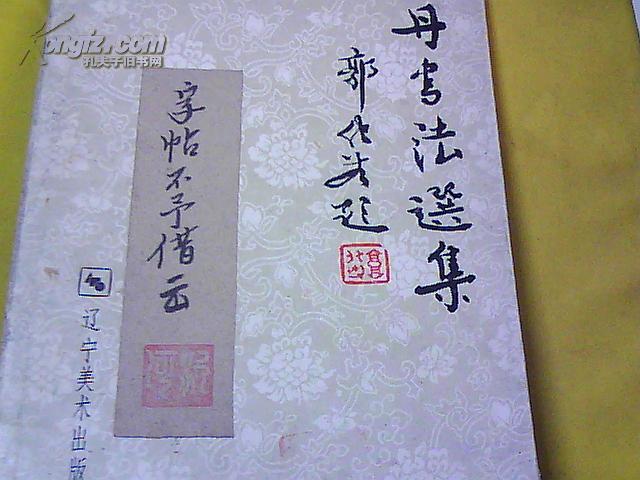 Kongfz.com
孔夫子旧书网
丹书法選集
郭化若题
字帖不予借云
辽宁美术出版